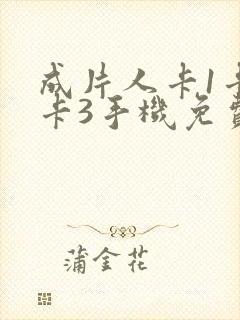 成片人卡1卡
卡3手機免費
蒲金花